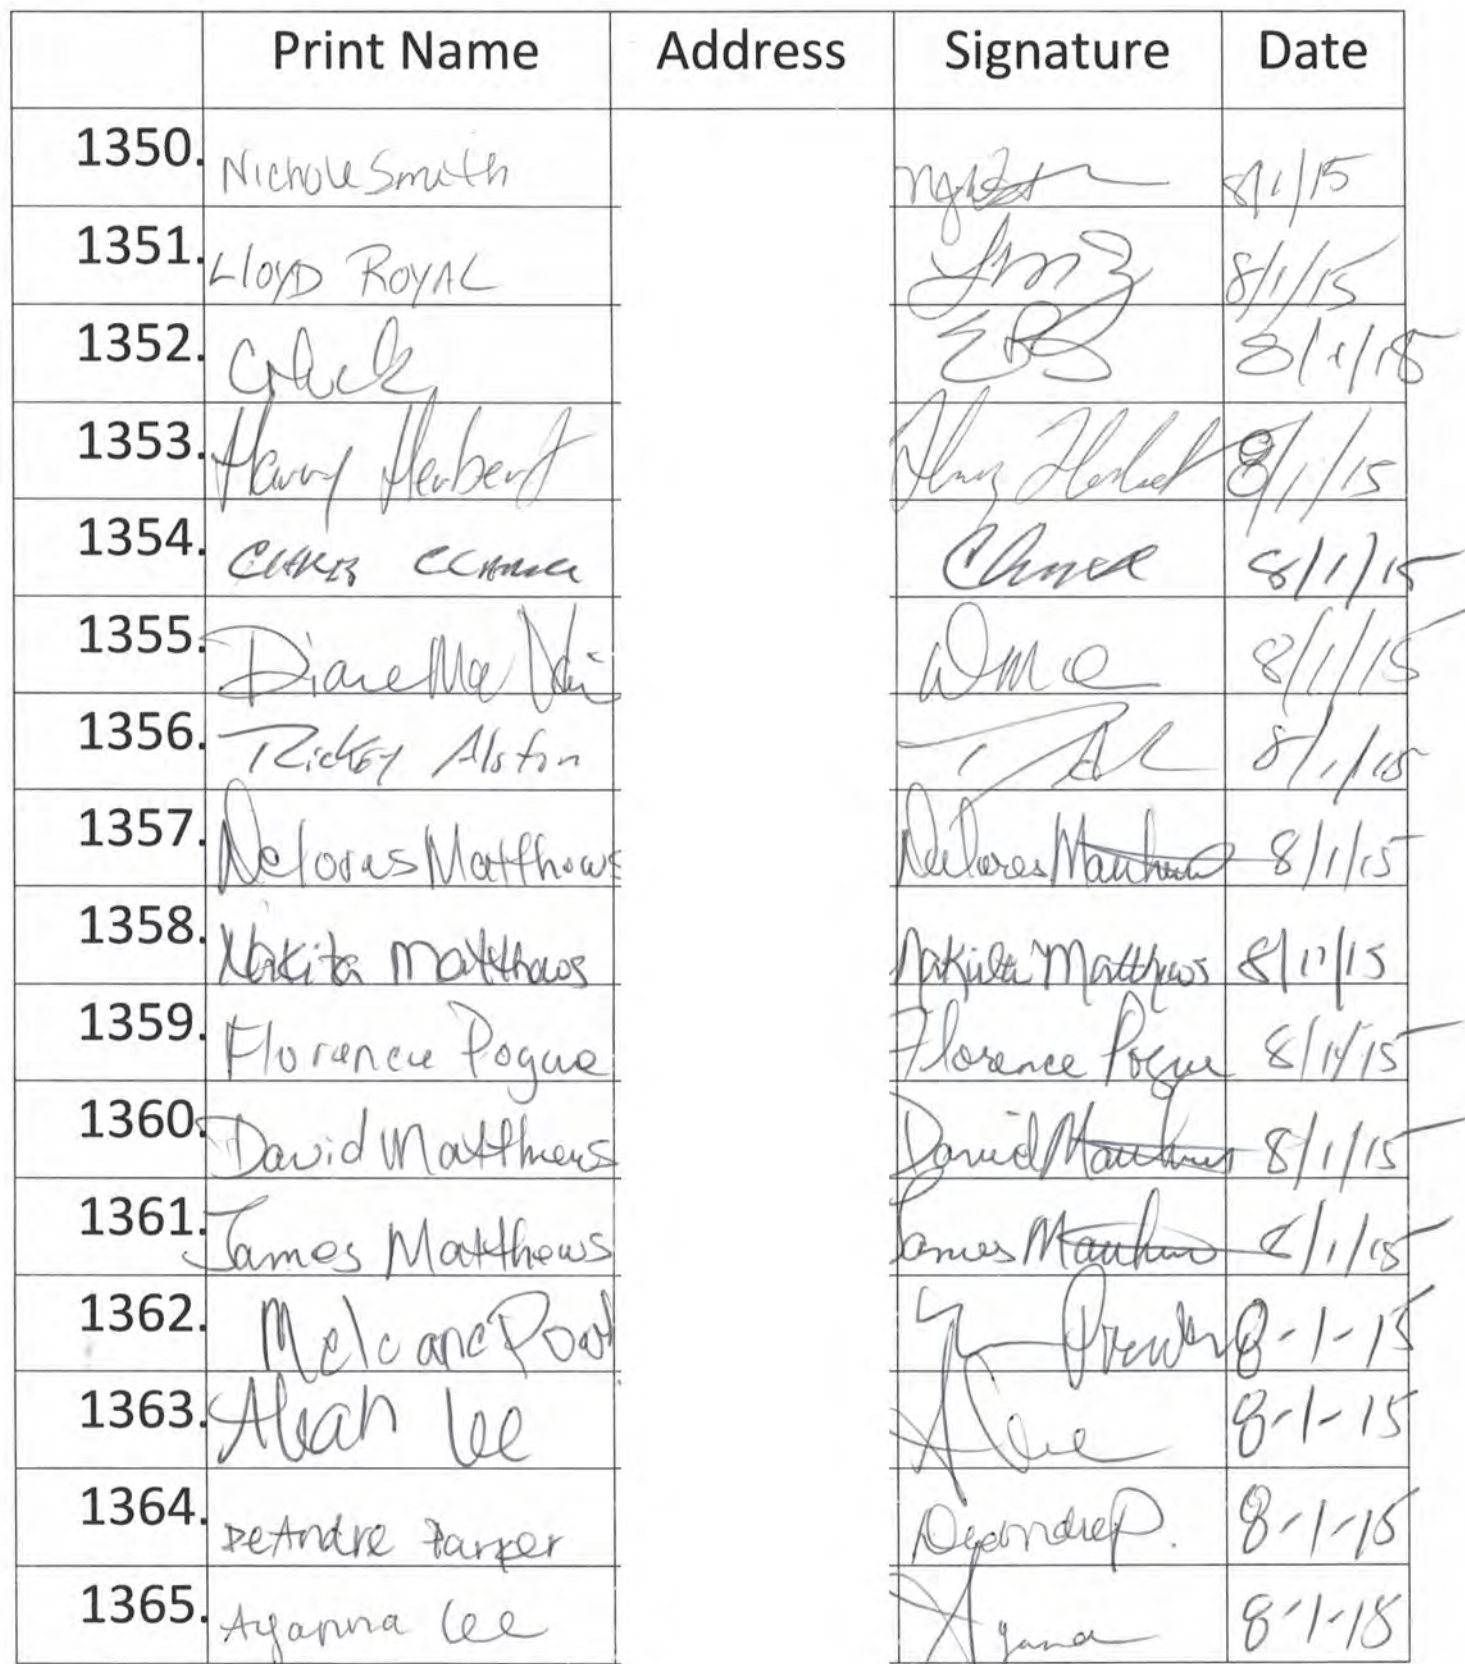 Print Name Address Signature Date
1350. Nichole Smith 8/1/15
1351. LLOYD ROYAL 8/1/15
1352. 8/1/15
1353. Harry Herbert Harry Herbert 8/1/15
1354. 8/1/15
1355. Diane Mc 8/1/15
1356. Rickey Alston 8/1/15
1357. Deloras Matthews Delores Matthews 8/1/15
1358. Nakita Matthews Nakita Matthews 8/1/15
1359. Florence Pogue Florence Pogue 8/1/15
1360. David Matthews David Matthews 8/1/15
1361. James Matthews James Matthews 8/1/15
1362. 8-1-15
1363. Aleah Lee ALee 8-1-15
1364. DeAndre Parker Deandre P. 8-1-15
1365. Ayanna Lee Ayana 8-1-15